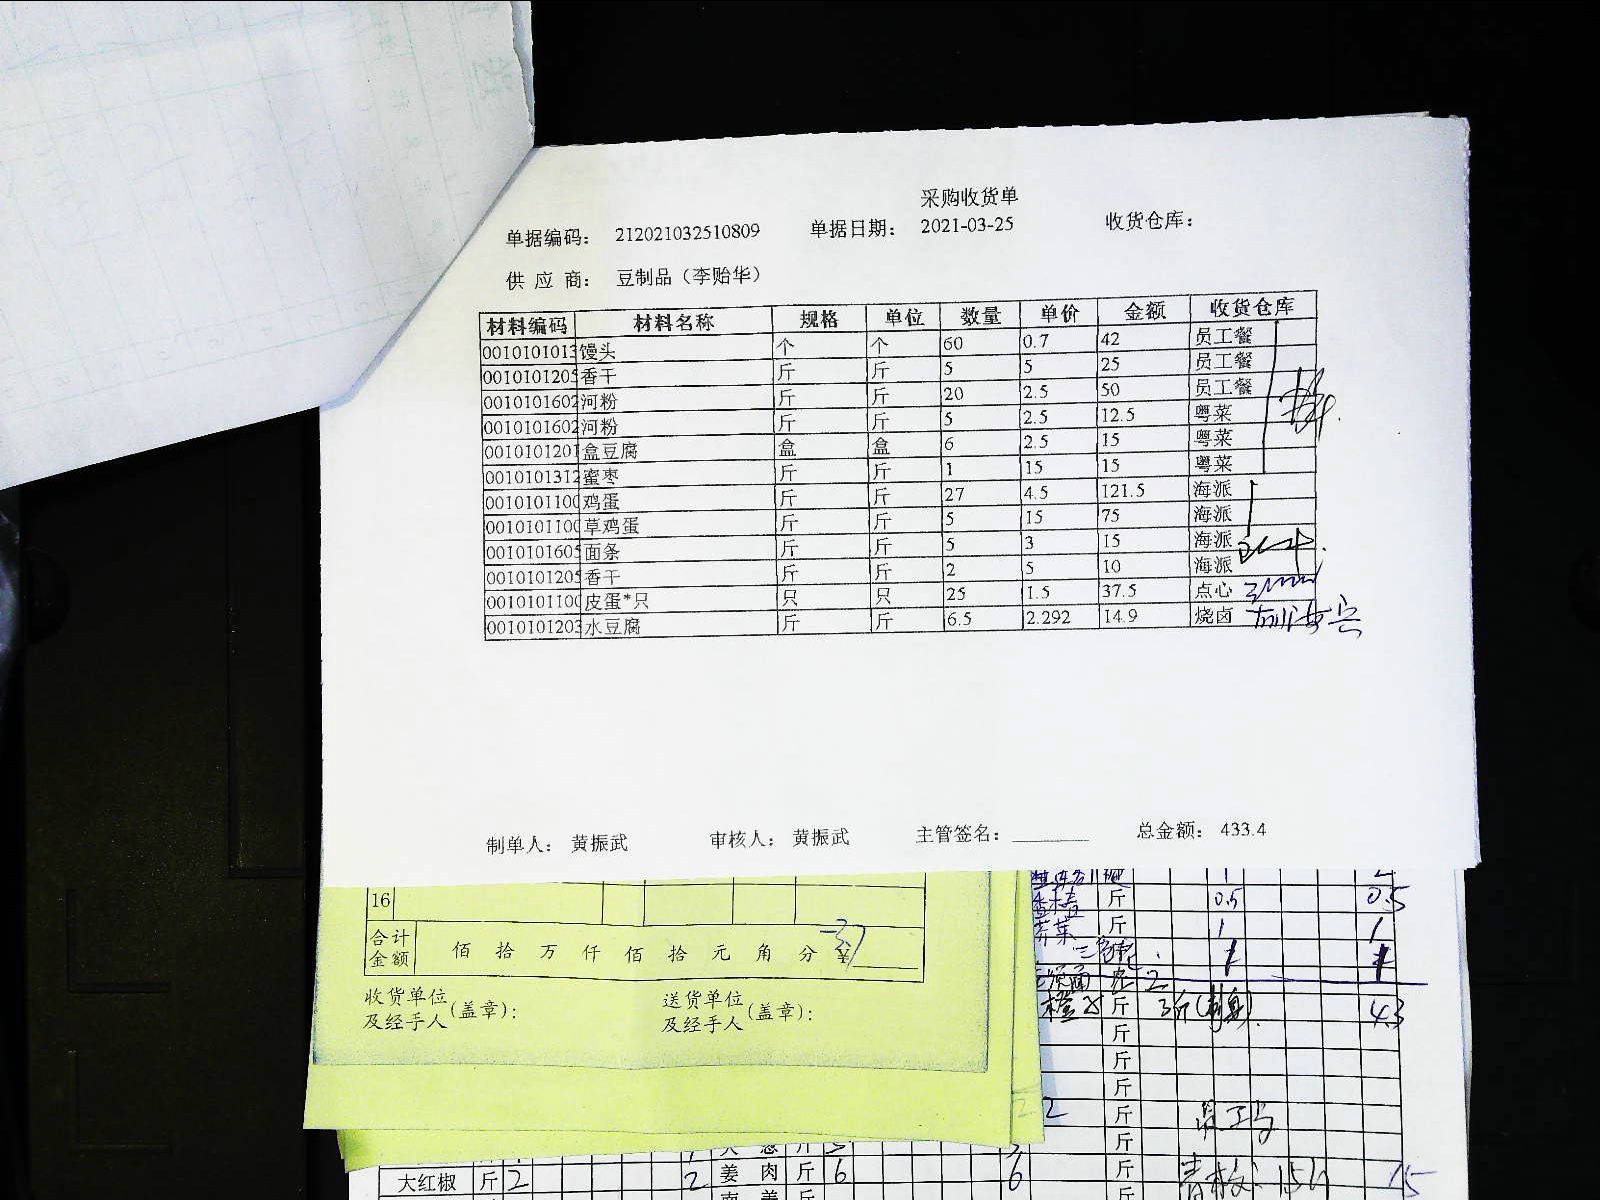 采购收货单
单据编码： 212021032510809 单据日期： 2021-03-25 收货仓库：
供 应 商： 豆制品（李贻华）
材料编码 材料名称 规格 单位 数量 单价 金额 收货仓库
0010101013 馒头 个 个 60 0.7 42 员工餐
0010101205 香干 斤 斤 5 5 25 员工餐
0010101602 河粉 斤 斤 20 2.5 50 员工餐
0010101602 河粉 斤 斤 5 2.5 12.5 粤菜
0010101201 盒豆腐 盒 盒 6 2.5 15 粤菜
0010101312 蜜枣 斤 斤 1 15 15 粤菜
0010101100 鸡蛋 斤 斤 27 4.5 121.5 海派
0010101100 草鸡蛋 斤 斤 5 15 75 海派
0010101605 面条 斤 斤 5 3 15 海派
0010101205 香干 斤 斤 2 5 10 海派
0010101100 皮蛋*只 只 只 25 1.5 37.5 点心
0010101203 水豆腐 斤 斤 6.5 2.292 14.9 烧卤
制单人： 黄振武 审核人： 黄振武 主管签名： 总金额： 433.4
16
合计金额 佰 拾 万 仟 佰 拾 元 角 分 ¥
收货单位及经手人(盖章)： 送货单位及经手人(盖章)：
斤 0.5 0.5
斤 1 1
斤 43
斤
斤
斤
2 斤
斤
大红椒 斤 2 2 姜 肉 斤 6 6 斤 15